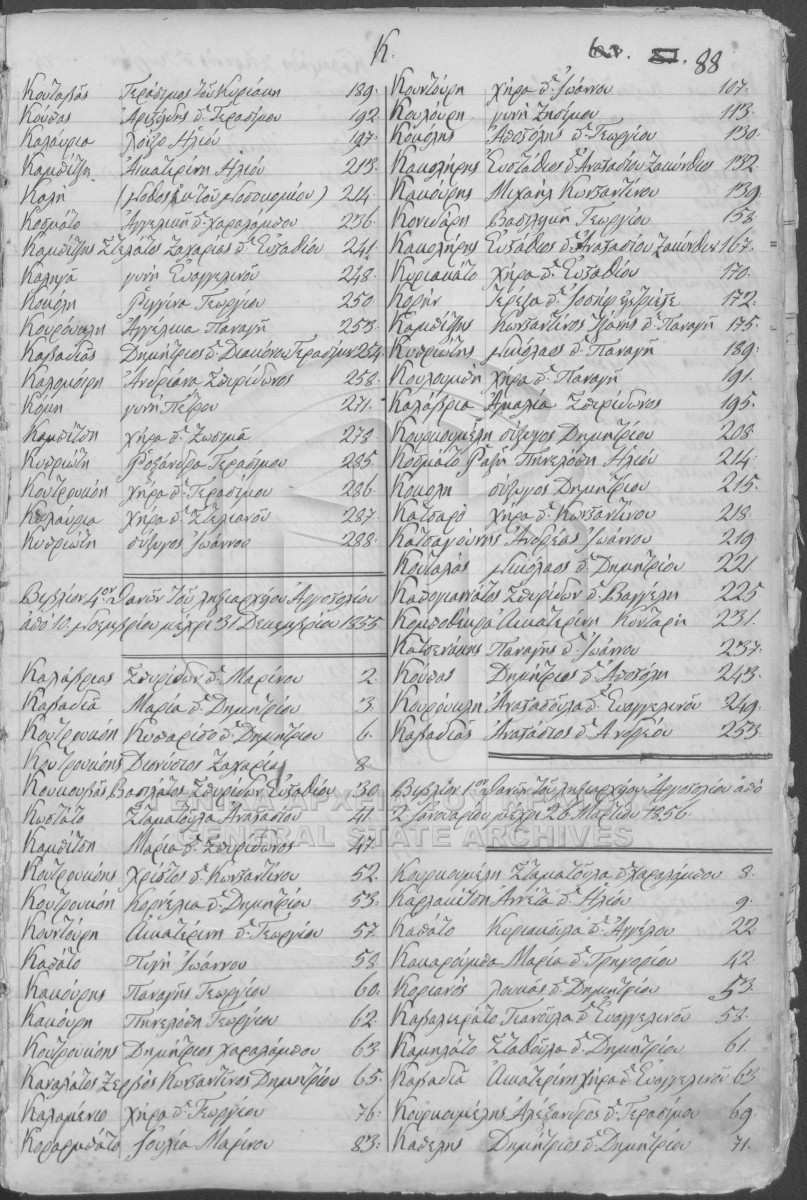 Κ.
88
Κουταβᾶς Γεράσιμος τοῦ Κυριάκη 189.
Κούπας Ἀριστείδης δ. Γερασίμου 192.
Καλαύρια Λοΐζο Ηλιού 197.
Καμπίτζη Αἰκατερίνη Ηλιού 213.
Καλή 214
Κοσμάτο Ἀγγελική δ. Χαραλάμπου 236.
Καμπίτζης Στελάτος Ζαχαρίας δ. Εὐσταθίου 241.
Καλιγά γυνή Εὐαγγελινοῦ 248.
Κοκόλη Ρεγγίνα Γεωργίου 250
Κουρούκλη Ἀγγέλικα Παναγῆ 253.
Καβαδιᾶς Δημήτριος δ. Διακόνου Γερασίμου 254
Καλομοίρη Ἀνδριάνα Σπυρίδωνος 258.
Κόμη γυνή Πέτρου 271.
Καμπίτση χήρα δ. Ζωσιμᾶ 273.
Κυπριώτη Ροξάνδρα Γερασίμου 285.
Κουτρουκόη χήρα δ. Γερασίμου 286.
Καλαύρια χήρα δ. Στελιανοῦ 287.
Κυπριώτη σύζυγος Ἰωάννου 288.
Βιβλίον 4ον Θανῶν τοῦ ληξιαρχείου Ἀργοστολίου
ἀπό 10 Νοεμβρίου μέχρι 31 Δεκεμβρίου 1855
Καλάβριας Σπυρίδων δ. Μαρίνου 2.
Καβαδία Μαρία δ. Δημητρίου 3.
Κουτρουκόη Κυπαρισσο δ. Δημητρίου 6.
Κουτρουκόης Διονύσιος Ζαχαρία 8
Κουκουβᾶς Βασιλάτος Σπυρίδων Εὐσταθίου 30
Κωστάτο Σταματούλα Ἀναστασίου 41.
Καμπίτση Μαρία δ. Σπυρίδωνος 47.
Κουτρουκόης Χρίστος δ. Κωνσταντίνου 52.
Κουτρουκόη Κορνέλια δ. Δημητρίου 53.
Κουντούρη Αἰκατερίνη δ. Γεωργίου 57.
Καπάτο Πηγή Ἰωάννου 58
Κακούρης Παναγῆς Γεωργίου 60.
Κακούρη Πηνελόπη Γεωργίου 62.
Κουτρουκόης Δημήτριος Χαραλάμπου 63.
Καναλάτος Ζερβὸς Κωνσταντίνος Δημητρίου 65.
Καλαμένιο χήρα δ. Γεωργίου 76.
Ἰουλία Μαρίνου 83.
Κουντούρη χήρα δ. Ἰωάννου 107.
Κουλούρη γυνή Ζησίμου 113.
Κοκόλης Ἀποστόλης δ. Γεωργίου 130.
Κακολήρης Εὐστάθιος δ. Ἀναστασίου Ζακύνθιος 132.
Κακούρης Μιχαήλ Κωνσταντίνου 139.
Κονιδάρη Βασιλική Γεωργίου 158.
Κακολήρης Εὐστάθιος δ. Ἀναστασίου Ζακύνθιος 167.
Κυριακάτο χήρα δ. Εὐσταθίου 170.
Κορήν Τερέζα δ. Ἰοσήφ 172.
Καμπίτζης Κωνσταντίνος δ. Παναγῆ 175.
Κυπριώτης Νικόλαος δ. Παναγῆ 189.
Κουλουμπῆ χήρα δ. Παναγῆ 191.
Καλάβρια Ἀμαλία Σπιρίδωνος 195.
Κουρκουμέλη σύζυγος Δημητρίου 208
Κοσμάτο Πηνελόπη Ηλιού 214.
Κοκολη σύζυγος Δημητρίου 215.
Κατσαρό χήρα δ. Κωνσταντίνου 218.
Κατσαγούνης Ἀνδρέας Ἰωάννου 219.
Κουταλᾶς Νικόλαος δ. Δημητρίου 221
Καπομανάτος Σπυρίδων δ. Βαγγέλη 225
Κομποθέκρα Αἰκατερίνη Κονταρή 231.
Κατσενάκης Παναγῆς δ. Ἰωάννου 237.
Κούπας Δημήτριος δ. Ἀποστόλη 243.
Κουρούκλη Ἀναστασούλα δ. Εὐαγγελινοῦ 249.
Καβαδιᾶς Ἀναστάσιος δ. Ἀνδρέου 253.
Βιβλίον 1ον Θανῶν τοῦ ληξιαρχείου Ἀργοστολίου ἀπό
2 Ἰανουαρίου μέχρι 26 Μαρτίου 1856.
Κουρκουμέλη Σταματούλα δ. Χαραλάμπου 8.
Καρλακίτση Ἀννέτα δ. Ηλιού 9.
Καπάτο Κυριακούλα δ. Ἀγγέλου 22
Κακαρούμπα Μαρία δ. Γρηγορίου 42
Κοριανός Λουκάς δ. Δημητρίου 53.
Καβαλιεράτο Γιανούλα δ. Εὐαγγελινοῦ 58.
Καμηλάτο Σταθούλα δ. Δημητρίου 61
Καβαδία Αἰκατερίνη χήρα δ. Εὐαγγελινοῦ 63
Κουρκουμέλης Ἀλέξανδρος δ. Γερασίμου 69.
Καπελης Δημήτριος δ. Δημητρίου 71.
ΓΕΝΙΚΑ ΑΡΧΕΙΑ ΤΟΥ ΚΡΑΤΟΥΣ
GENERAL STATE ARCHIVES